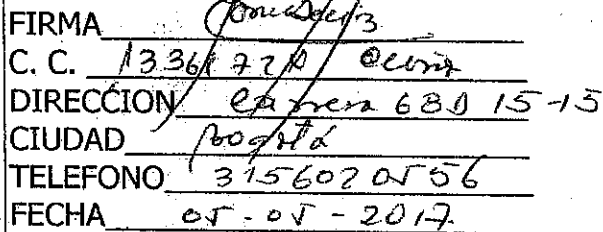 FIRMA
C. C. Ocaña
DIRECCION Carrera 68D 15-15
CIUDAD Bogotá
TELEFONO 3156020556
FECHA 05-05-2017